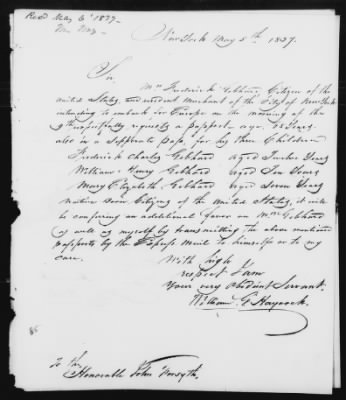 Recd May 6' 1837
New York May 5th 1837.
Sir,
Mr Frederick Gebhard, Citizen of the
United States, and resident Merchant of the City of New York
intending to embark for Europe on the morning of the
9th respectfully requests a passport - age, Years
also in a Seperate pass, for his three Children
Frederick Charles Gebhard aged Twelve Years
William Henry Gebhard aged Ten Years
Mary Elizabeth Gebhard aged Seven Years
native born Citizens of the United States, it will
be confering an additional favor on Mr Gebhard
as well as myself by transmitting the above mentioned
passports by the Express Mail to himself or to my
care.
With high
respect I am
Your very obedient Servant.
William G Haycock.
To the
Honorable John Forsyth,